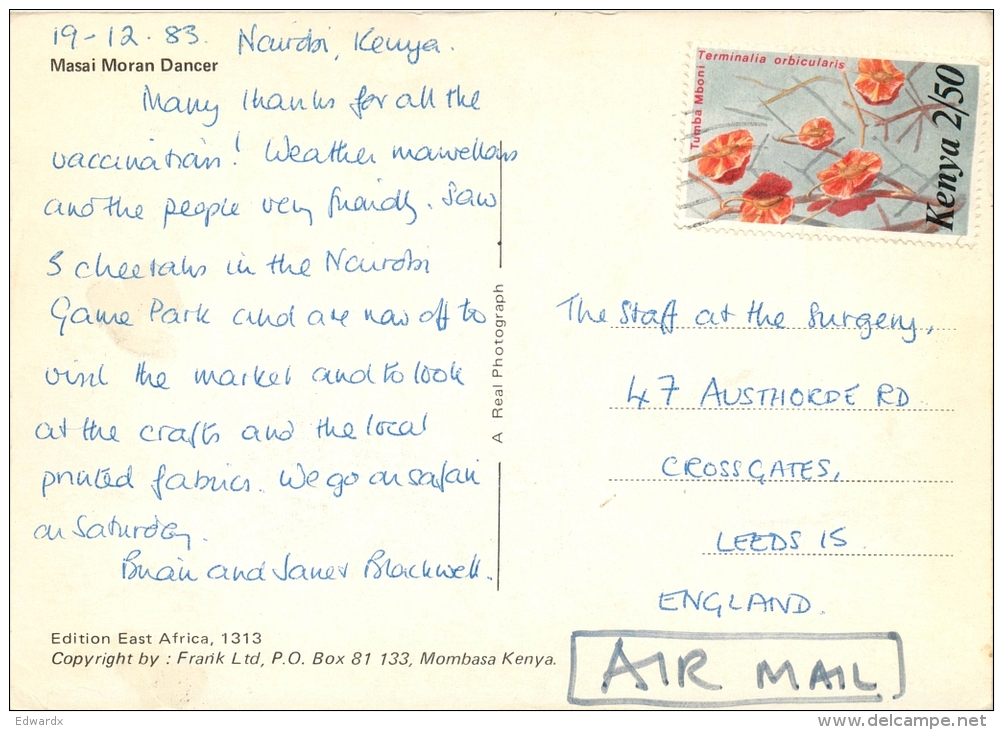 19-12-83. Nairobi, Kenya.
Masai Moran Dancer
Many thanks for all the
vaccinations! Weather marvellous
and the people very friendly. Saw
3 cheetahs in the Nairobi
Game Park and are now off to
visit the market and to look
at the crafts and the local
printed fabrics. We go on safari
on Saturday.
Brian and Janet Blackwell.
Edition East Africa, 1313
Copyright by : Frank Ltd, P.O. Box 81 133, Mombasa Kenya.
A Real Photograph
Terminalia orbicularis
Tumba Mboni
Kenya 2/50
The Staff at the Surgery,
47 AUSTHORDE RD
CROSSGATES,
LEEDS 15
ENGLAND.
AIR MAIL
Edwardx
www.delcampe.net